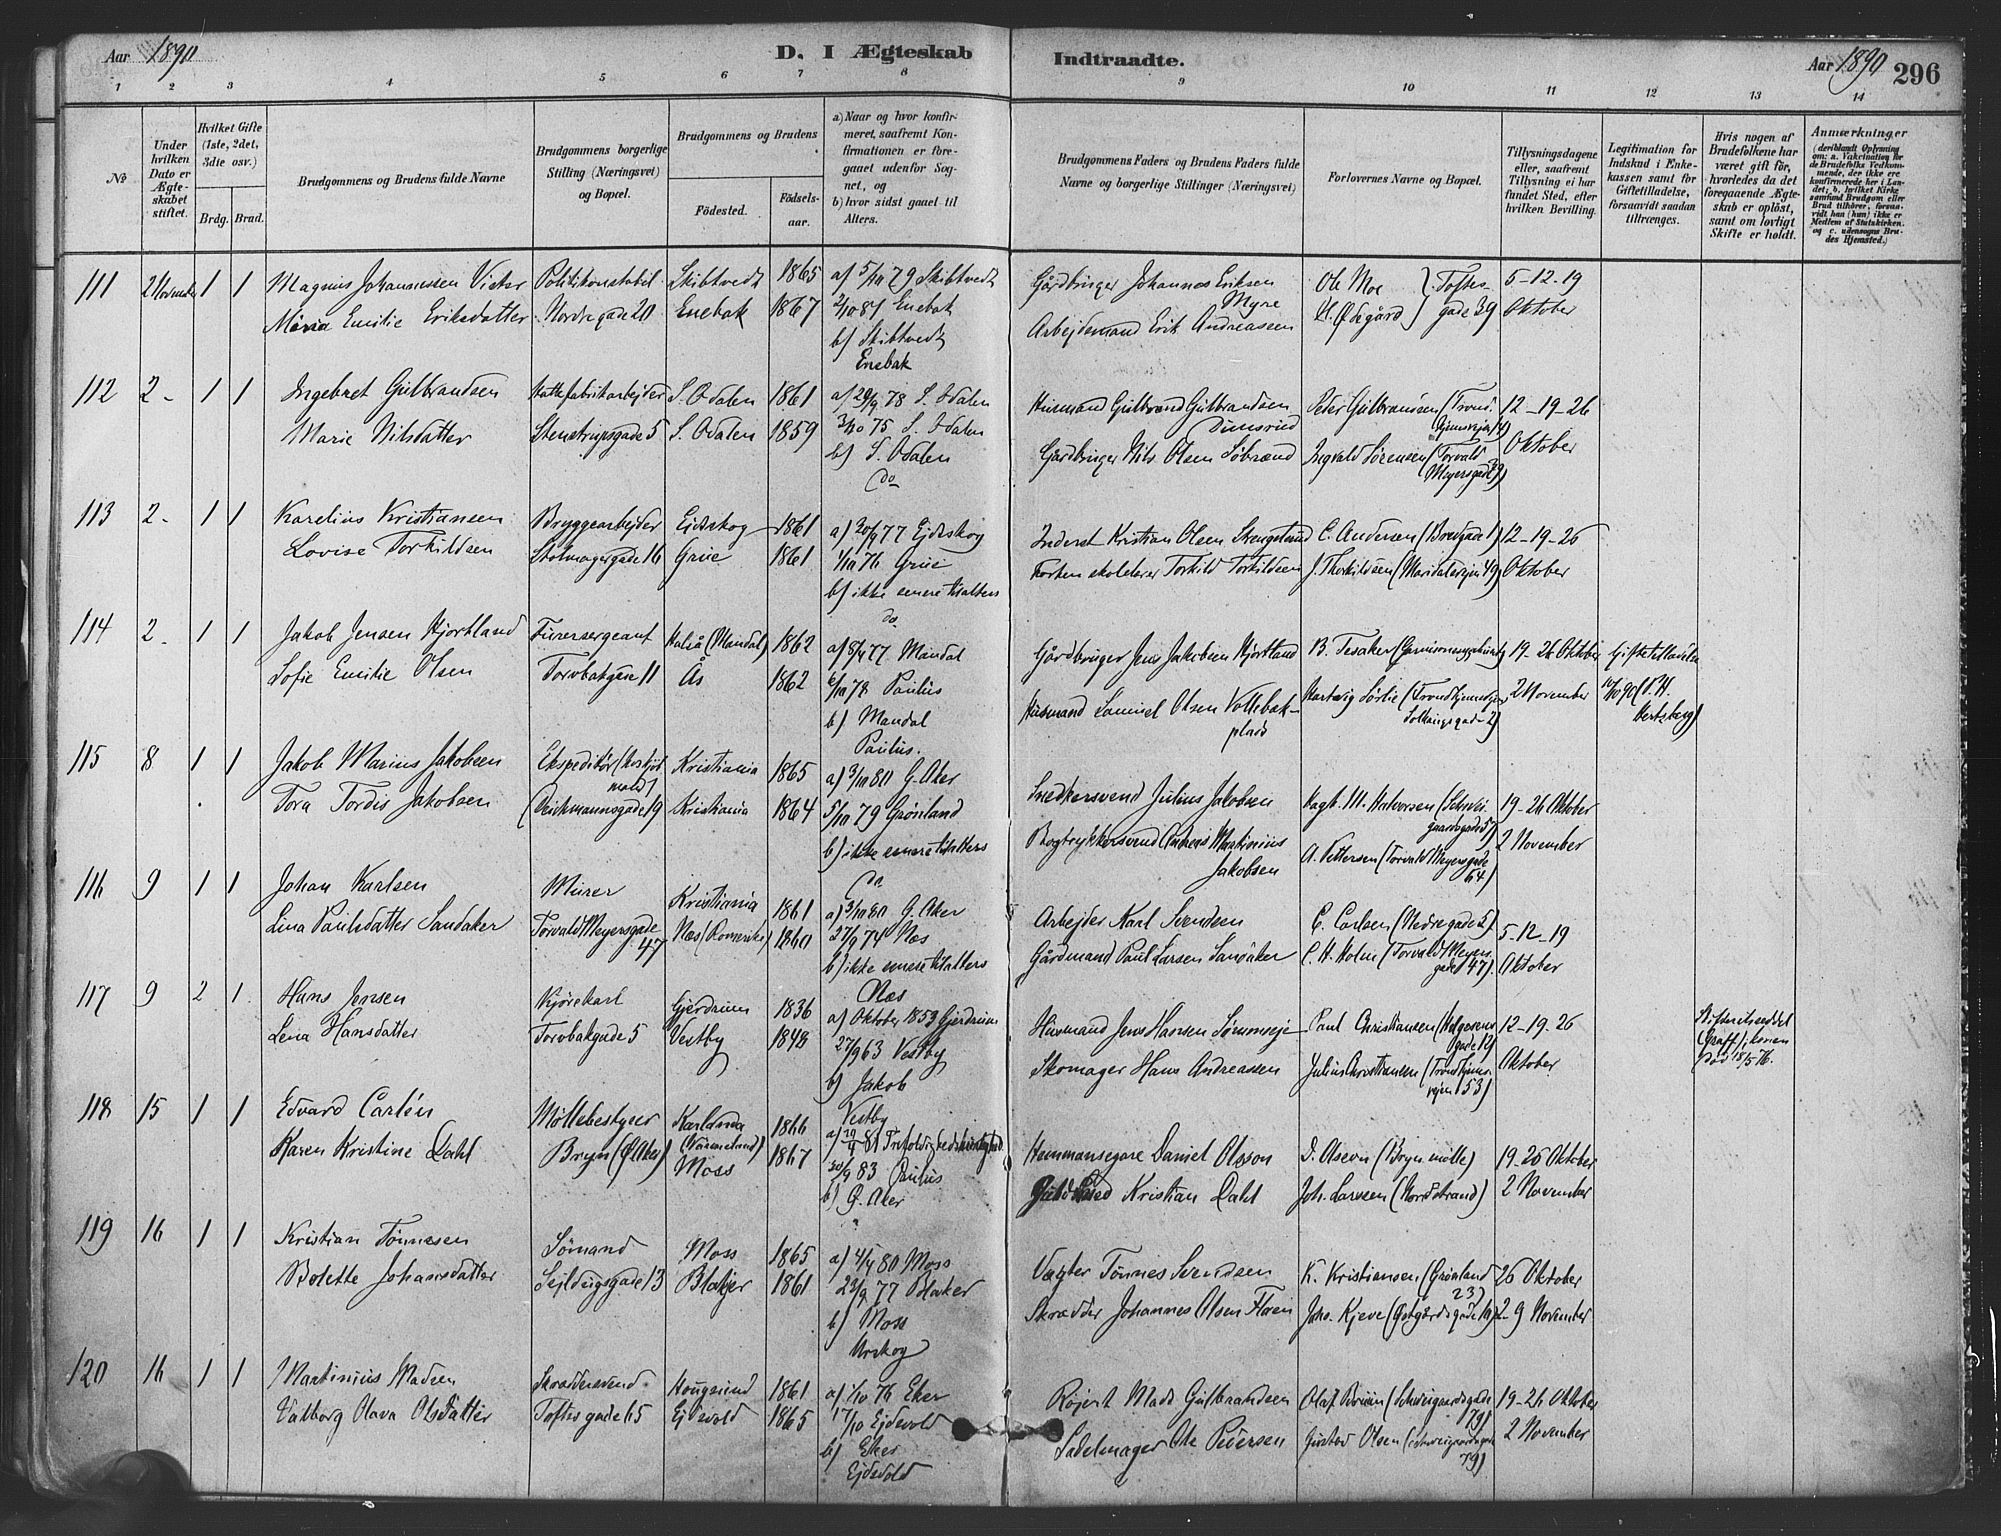 Aar 1890
D. I Ægteskab
Indtraadte.
Aar 1890
296
1 2 3 4 5 6 7 8 9 10 11 12 13 14
No
Under hvilken Dato er Ægteskabet stiftet.
Hvilket Gifte (1ste, 2det, 3die osv.)
Brdg. Brud.
Brudgommens og Brudens fulde Navne
Brudgommens borgerlige Stilling (Næringsvei) og Bopæl.
Brudgommens og Brudens
Fødested.
Fødselsaar.
a) Naar og hvor konfirmeret, saafremt Konfirmationen er foregaaet udenfor Sognet, og
b) hvor sidst gaaet til Alters.
Brudgommens Faders og Brudens Faders fulde Navne og borgerlige Stillinger (Næringsvei)
Forlovernes Navne og Bopæl.
Tillysningsdagene eller, saafremt Tillysning ei har fundet Sted, efter hvilken Bevilling.
Legitimation for Indskud i Enkekassen samt for Giftetilladelse, forsaavidt saadan tiltrænges.
Hvis nogen af Brudefolkene har været gift før, hvorledes da det foregaaende Ægteskab er opløst, samt om lovligt Skifte er holdt.
Anmærkninger
(deriblandt Oplysning om: a. Vakcination for de Brudefolks Vedkommende, der ikke ere konfirmerede her i Landet; b. hvilket Kirkesamfund Brudgom eller Brud tilhører, forsaavidt han (hun) ikke er Medlem af Statskirken, og c. udensogns Brudes Hjemsted.)
111 2 November 1 1 Magnus Johannessen Vister Politikonstabel Skibtvedt 1865 a) 5/10 79 Skibtvedt Gårdbruger Johannes Eriksen Myre Ole Moe } Toftes- 5-12-19
Maria Emilie Eriksdatter Nordregade 20 Enebak 1867 2/10 81 Enebak Arbejdsmand Erik Andreassen H. Ødegård } gade 39 Oktober
b) Skibtvedt
Enebak
112 2 - 1 1 Ingebret Gulbrandsen Hattefabrikarbejder S. Odalen 1861 a) 29/9 78 S. Odalen Husmand Gulbrand Gulbrandsen Peter Gulbransen (Trondhjemsvejen 4) 12-19-26
Marie Nilsdatter Stenstrupsgade 5 S. Odalen 1859 3/10 75 S. Odalen Gårdbruger Nils Olsen Ingvald Sørensen (Torvald Meyersgade 39) Oktober
b) S. Odalen
do
113 2 - 1 1 Karelius Kristiansen Bryggearbejder Ejdskog 1861 a) 30/9 77 Ejdskog Inderst Kristian Olsen C. Andersen (Bredgade 1) 12-19-26
Lovise Torkildsen Stolmagergade 16 Grue 1861 1/10 76 Grue skolelærer Torkild Torkildsen J. Thorkildsen (Maridalsvejen 41) Oktober
b) ikke senere til alters
do
114 2 - 1 1 Jakob Jensen Hjortland Furersergeant Halså (Mandal) 1862 a) 8/4 77 Mandal Gårdbruger Jens Jakobsen Hjortland B. Tesaker 19-26 Oktober Giftetilladelse
Sofie Emilie Olsen Torvbakgade 11 Ås 1862 6/10 78 Paulus Husmand Samuel Olsen Vollebakplads Hartvig Sørlie 2 November 10/10 90 (V. H. Hertzberg)
b) Mandal
Paulus.
115 8 1 1 Jakob Marius Jakobsen Ekspeditør Kristiania 1865 a) 3/10 80 G. Aker Snedkersvend Julius Jakobsen M. Halvorsen (Schweigaardsgade 57) 19-26 Oktober
Tora Tordis Jakobsen (Deichmannsgade 19 Kristiania 1864 5/10 79 Grønland Bogtrykkersvend Andreas Martinius Jakobsen A. Pettersen (Torvald Meyersgade 64) 2 November
b) ikke senere til alters
do
116 9 1 1 Johan Karlsen Murer Kristiania 1861 a) 3/10 80 G. Aker Arbejder Karl Svendsen C. Carlsen (Nedregade 5). 5-12-19
Lina Paulsdatter Sandaker Torvald Meyersgade 47 Næs (Romerike) 1860 27/9 74 Næs Gårdmand Paul Larsen Sandaker C. H. Holm (Torvald Meyersgade 47). Oktober
b) ikke senere til alters
Næs
117 9 2 1. Hans Jensen Kjørekarl Gjerdrum 1836 a) Oktober 1853 Gjerdrum Husmand Jens Hansen Paul Christiansen (Helgesensgade 12) 12-19-26
Lena Hansdatter Torvbakgade 5 Vestby 1848 27/9 63 Vestby Skomager Hans Andreassen Julius Christiansen (Trondhjemsvejen 53) Oktober
b) Jakob
Vestby
Skifteretseddel (Graff); konen død 18/5 76.
118 15 1 1 Edvard Carlén Møllebestyrer Karlskoga (Värmeland) 1866 a) 81 Hemmansegare Daniel Olsson D. Olsen (Bryn mølle) 19-26 Oktober
Karen Kristine Dahl Bryn (Ø. Aker) Moss 1867 30/9 83 Paulus Kristian Dahl Joh. Larsen (Nordstrand) 2 November
b) Ø. Aker
"
119 16 1 1 Kristian Tønnesen Sømand Moss 1865 a) 4/4 80 Moss Vægter Tønnes Svendsen K. Kristiansen (Grønland 23) 26 Oktober
Bolette Johansdatter Sejldugsgade 13 Blakjer 1861 23/9 77 Blaker Skrædder Johannes Olsen Floen Johs. Kjeve 2-9 November
b) Moss
Urskog
120 16 1 1 Martinius Madsen Skræddersvend Hougsund 1861 a) 1/10 76 Eker Røjert Mads Gulbrandsen Olaf Bruun (Schweigaardsgade 79) 19-26 Oktober
Valborg Olava Olsdatter Toftesgade 65 Ejdsvold 1865 17/10 Ejdsvold Sadelmager Ole Pedersen Gustav Olsen (Schweigaardsgade 79) 2 November
b) Eker
Ejdsvold